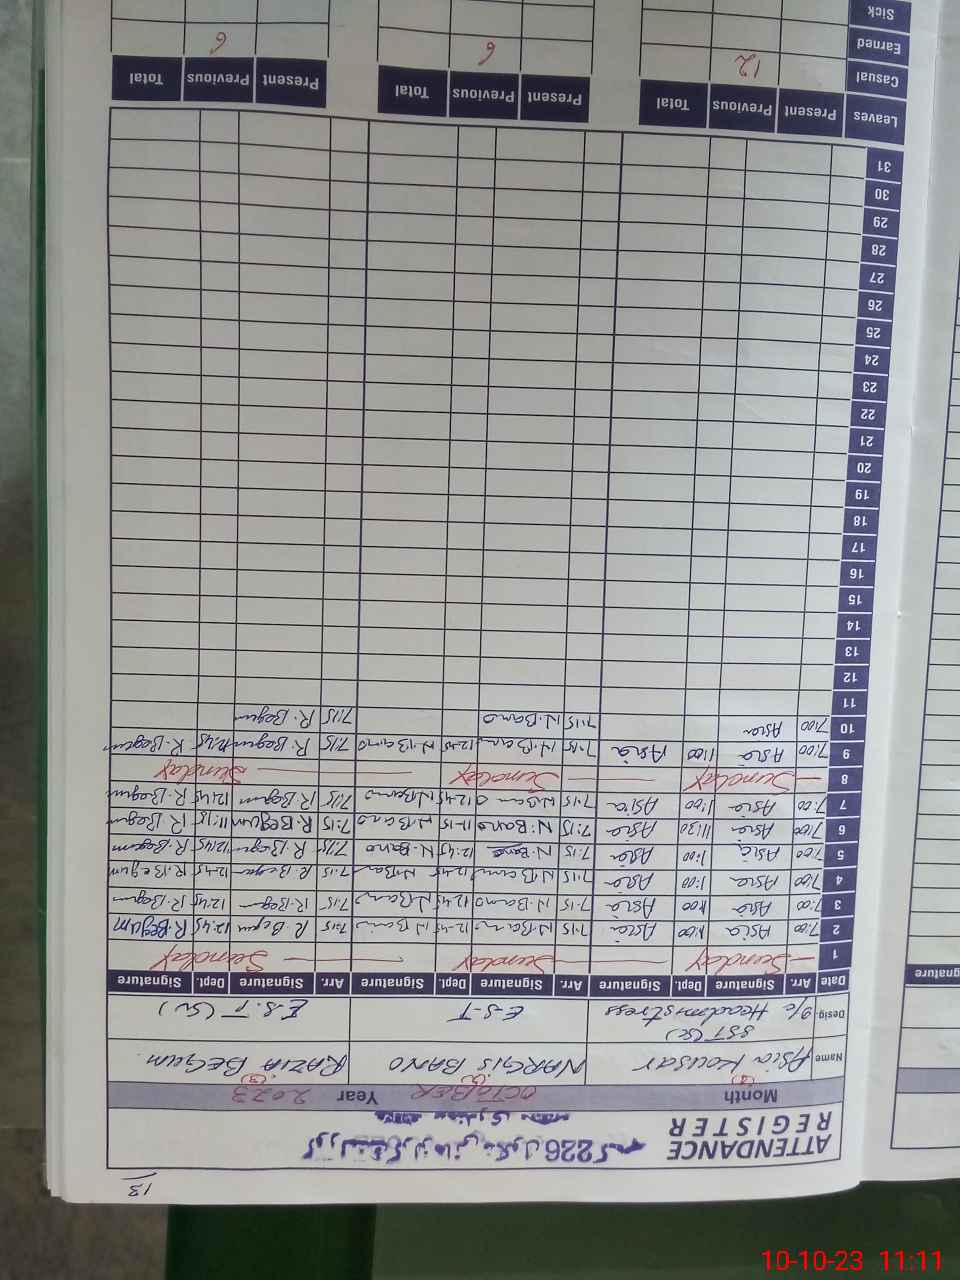 13
ATTENDANCE
REGISTER
Month OCTOBER Year 2023
Name Asia Kousar NARGIS BANO RAZIA BEGUM
Desig. SST (Sc) I/c Headmistress E-S-T E.S.T (Sr)
Date Arr. Signature Dept. Signature Arr. Signature Dept. Signature Arr. Signature Dept. Signature
1 Sunday Sunday Sunday
2 7:00 Asia 1:00 Asia 7:15 N.Bano 12:45 N.Bano 7:15 R.Begum 12:45 R.Begum
3 7:00 Asia 1:00 Asia 7:15 N.Bano 12:45 N.Bano 7:15 R.Begum 12:45 R.Begum
4 7:00 Asia 1:00 Asia 7:15 N.Bano 12:45 N.Bano 7:15 R.Begum 12:45 R.Begum
5 7:00 Asia 1:00 Asia 7:15 N.Bano 12:45 N.Bano 7:15 R.Begum 12:45 R.Begum
6 7:00 Asia 11:30 Asia 7:15 N.Bano 11-15 N.Bano 7:15 R.Begum 11:15 R.Begum
7 7:00 Asia 1:00 Asia 7:15 N.Bano 12:45 N.Bano 7:15 R.Begum 12:45 R.Begum
8 Sunday Sunday Sunday
9 7:00 Asia 1:00 Asia 7:15 N.Bano 12:45 N.Bano 7:15 R.Begum 12:45 R.Begum
10 7:00 Asia 7:15 N.Bano 7:15 R.Begum
11
12
13
14
15
16
17
18
19
20
21
22
23
24
25
26
27
28
29
30
31
Leaves Present Previous Total Present Previous Total Present Previous Total
Casual 12 6 6
Earned
Sick
10-10-23 11:11